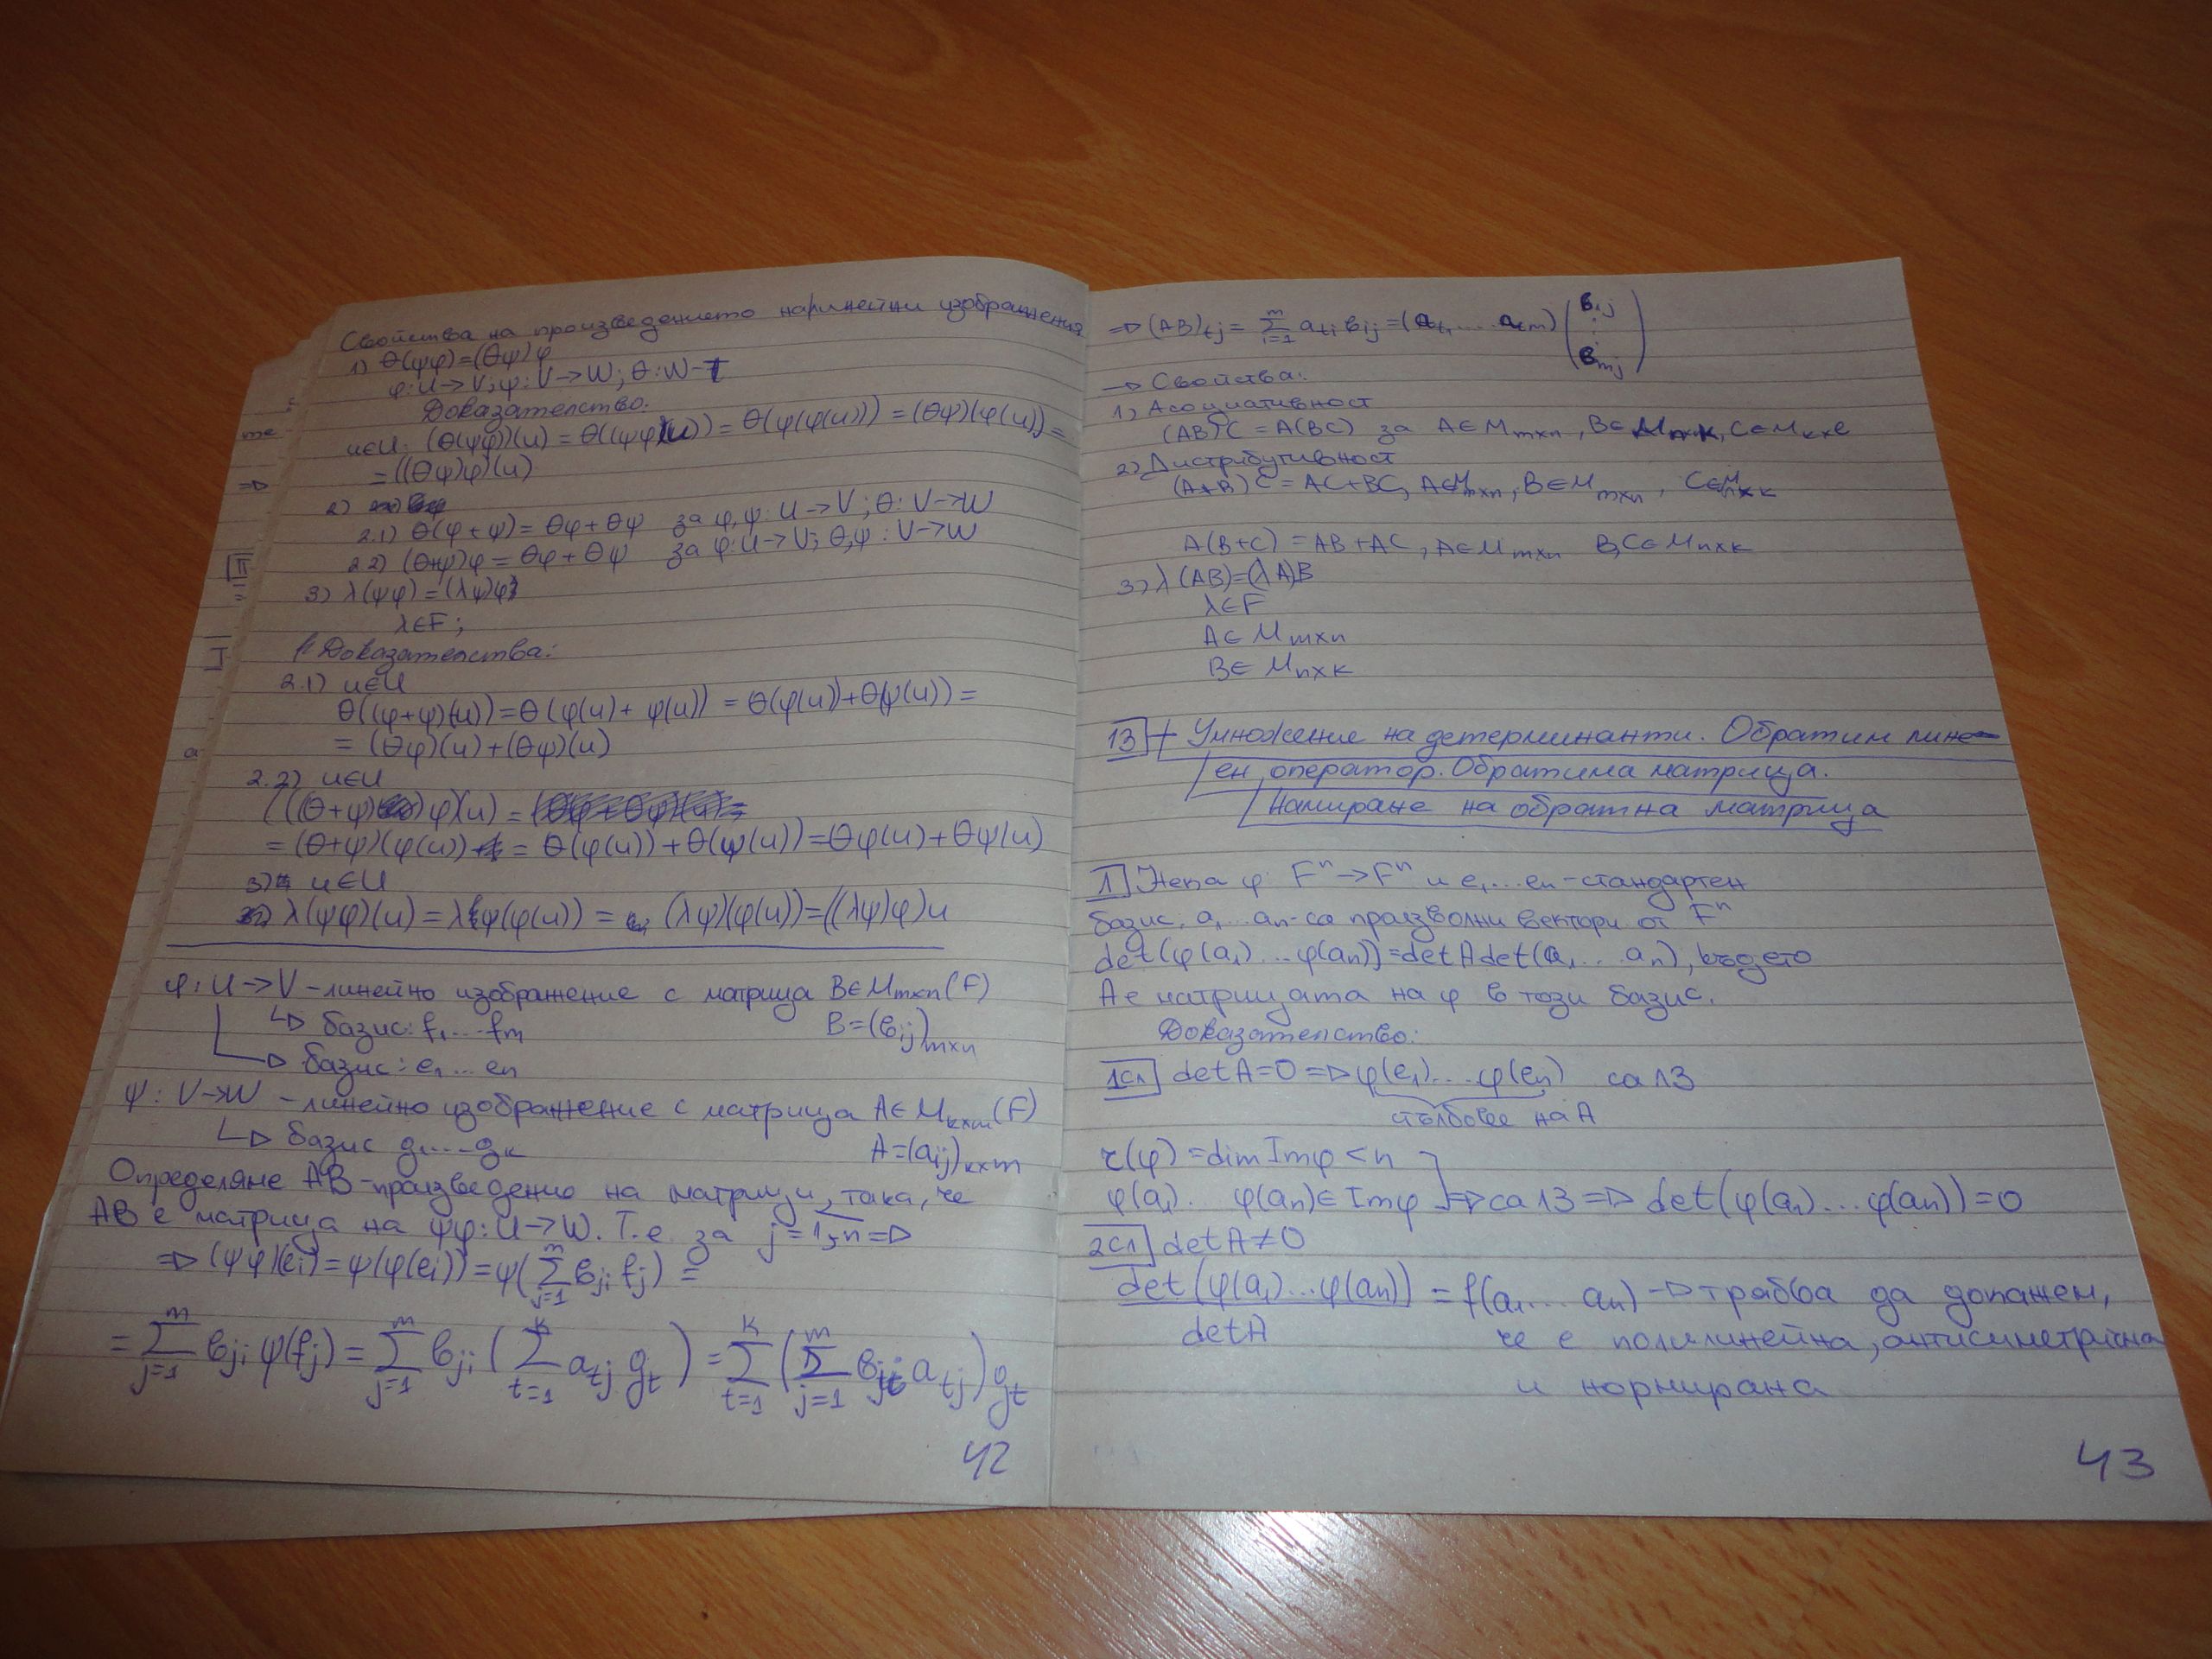 Свойства на произведението на линейни изображения.
1) θ(ψφ)=(θψ)φ
φ:U→V; φ:V→W; θ:W→T
Доказателство:
u∈U: (θ(ψφ))(u) = θ((ψφ)(u)) = θ(ψ(φ(u))) = (θψ)(φ(u)) =
= ((θψ)φ)(u)
2)
2.1) θ(φ+ψ) = θφ+θψ за φ,ψ: U→V; θ: V→W
2.2) (θ+ψ)φ = θφ+θψ за φ:U→V; θ,ψ: V→W
3) λ(ψφ) = (λψ)φ
λ∈F;
Доказателства:
2.1) u∈U
θ((φ+ψ)(u)) = θ(φ(u)+ψ(u)) = θ(φ(u))+θ(ψ(u)) =
= (θφ)(u)+(θψ)(u)
2.2) u∈U
((θ+ψ)φ)(u) =
= (θ+ψ)(φ(u)) = θ(φ(u))+θ(ψ(u)) = θφ(u)+θψ(u)
3) u∈U
λ(ψφ)(u) = λψ(φ(u)) = (λψ)(φ(u)) = ((λψ)φ)u
φ:U→V – линейно изображение с матрица B∈M_{m×n}(F)
↳ базис: f₁...f_m B=(в_{ij})_{m×n}
→ базис: e₁...e_n
ψ: V→W – линейно изображение с матрица A∈M_{k×m}(F)
↳ базис g₁....g_k A=(a_{ij})_{k×m}
Определяне AB-произведение на матрици, така, че
AB е матрица на ψφ:U→W. Т.е. за j=1,n ⇒
⇒ (ψφ)(e_i) = ψ(φ(e_i)) = ψ(∑_{j=1}^{m} в_{ji} f_j) =
= ∑_{j=1}^{m} в_{ji} ψ(f_j) = ∑_{j=1}^{m} в_{ji} (∑_{t=1}^{k} a_{tj} g_t) = ∑_{t=1}^{k} (∑_{j=1}^{m} в_{ji} a_{tj}) g_t
42
⇒ (AB)_{tj} = ∑_{i=1}^{m} a_{ti} в_{ij} = (a_{t1} .... a_{tm}) (в_{1j} ⋮ в_{mj})
→ Свойства:
1) Асоциативност
(AB)C = A(BC) за A∈M_{m×n}, B∈M_{n×k}, C∈M_{k×e}
2) Дистрибутивност
(A+B)C = AC+BC, A∈M_{m×n}, B∈M_{m×n}, C∈M_{n×k}
A(B+C) = AB+AC, A∈M_{m×n} B,C∈M_{n×k}
3) λ(AB)=(λA)B
λ∈F
A∈M_{m×n}
B∈M_{n×k}
13 Умножение на детерминанти. Обратим лине-
ен оператор. Обратима матрица.
Намиране на обратна матрица
1 Нека φ: Fⁿ→Fⁿ и e₁...e_n – стандартен
базис, a₁...a_n – са произволни вектори от Fⁿ
det(φ(a₁)...φ(a_n)) = detA det(a₁...a_n), където
A е матрицата на φ в този базис.
Доказателство:
1сл detA=0 ⇒ φ(e₁)...φ(e_n) са ЛЗ
стълбове на A
r(φ) = dim Imφ < n
φ(a₁).. φ(a_n)∈Imφ ⇒ са ЛЗ ⇒ det(φ(a₁)...φ(a_n))=0
2сл detA≠0
det(φ(a₁)...φ(a_n)) = f(a₁...a_n) → трябва да докажем,
detA че е полилинейна, антисиметрична
и нормирана
43